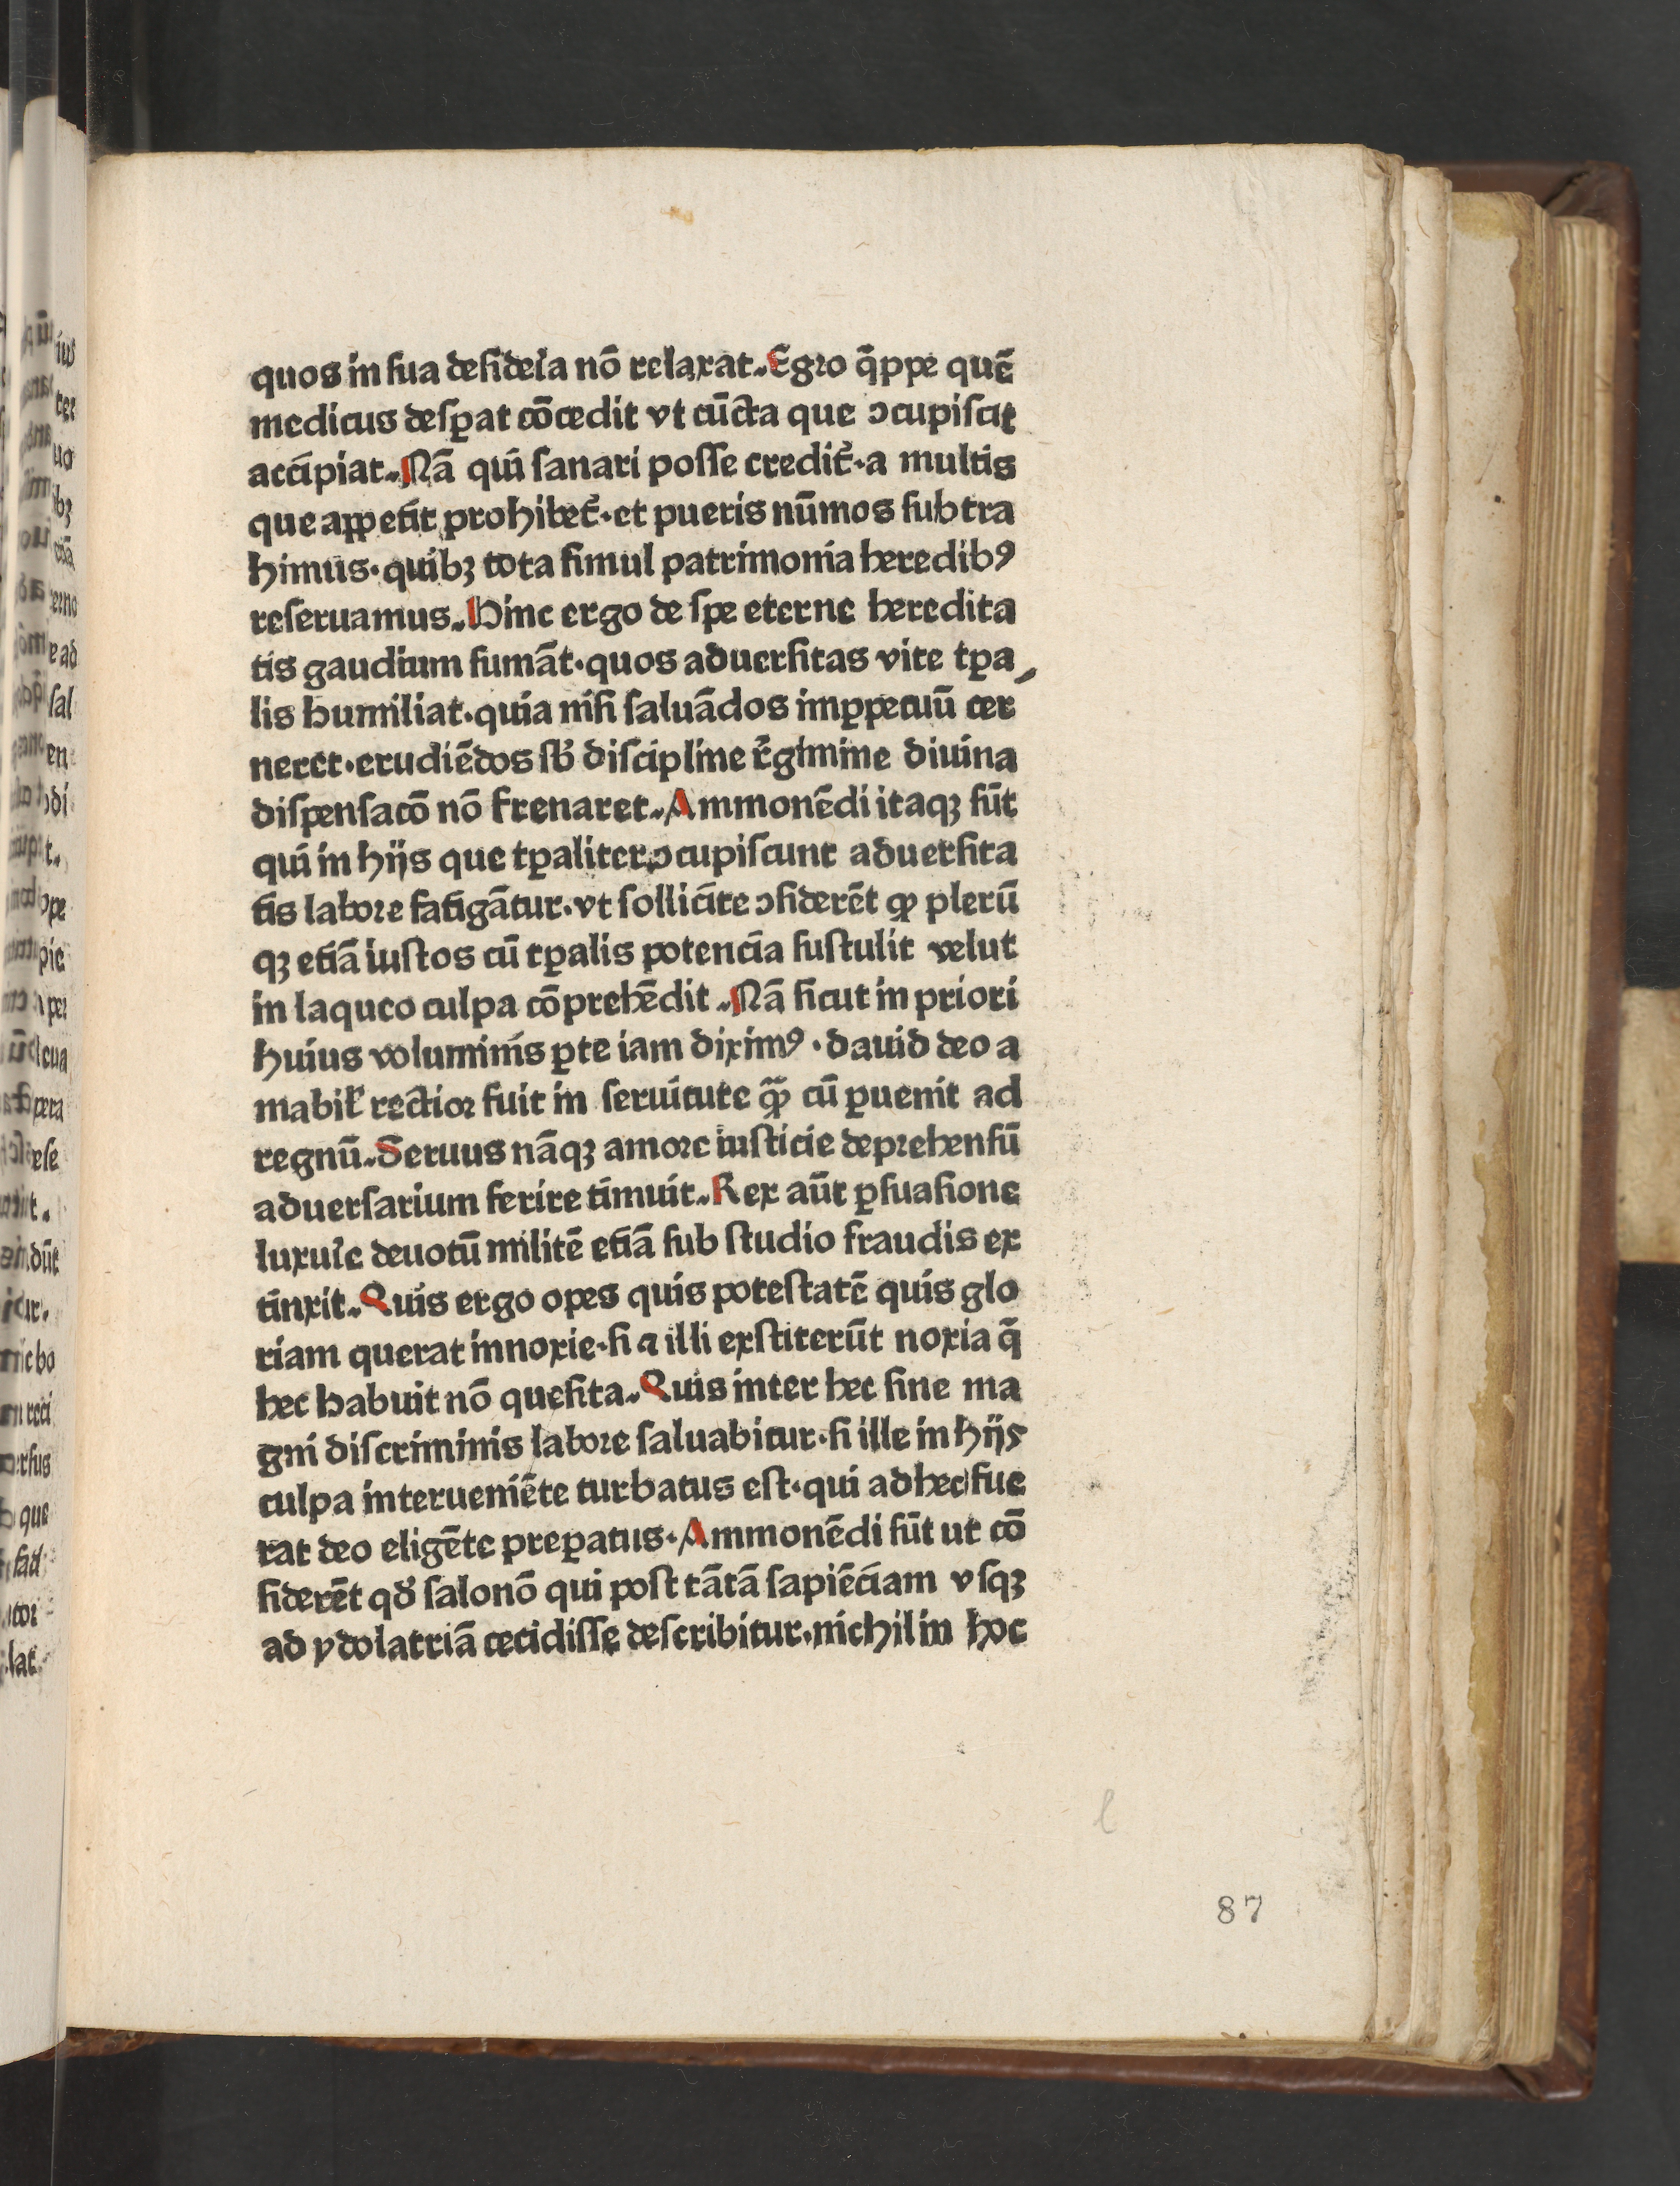 quos in sua desideͥa nō relaxat. Egro q̄ppe quē
medicus desꝑat cōcedit vt cūcta que ↄcupiscit
accipiat. Nā qui sanari posse credit᷑·a multis
que appetit prohibet᷑·et pueris nūmos subtra
himus·quibꝫ tota simul patrimonia heredibꝰ
reseruamus. Hinc ergo de spe eterne heredita
tis gaudium sumāt·quos aduersitas vite tꝑa
lis humiliat·quia nisi saluādos imꝑpetuū cer
neret·erudiēdos sb̾ discipline r̾gimine diuina
dispensacō nō frenaret. Ammonēdi itaqꝫ sūt
qui in hijs que tꝑaliter ↄcupiscunt aduersita
tis labore fatigātur·vt sollicite ↄsiderēt ꝙ plerū
qꝫ etiā iustos cū tꝑalis potencia sustulit velut
in laqueo culpa cōprehēdit. Nā sicut in priori
huius voluminis ꝑte iam diximꝰ·dauid deo a
mabil̾ rectior fuit in seruitute ꝙ̄ cū ꝑuenit ad
regnū. Seruus nāqꝫ amore iusticie deprehensū
aduersarium ferire timuit. Rex aūt ꝑsuasione
luxuͥe deuotū militē etiā sub studio fraudis ex
tinxit. Quis ergo opes quis potestatē quis glo
riam querat innoxie·si ⁊ illi exstiterūt noxia q̄
hec habuit nō quesita. Quis inter hec sine ma
gni discriminis labore saluabitur·si ille in hijs
culpa interueniēte turbatus est·qui ad hec fue
rat deo eligēte preꝑatus·Ammonēdi sūt ut cō
siderēt qd̾ salonō qui post tātā sapiēciam vsqꝫ
ad ydolatriā cecidisse describitur·nichil in hoc
l
87